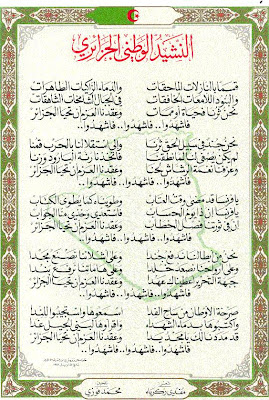 النشيد الوطني الجزائري
قسما بالنازلات الماحقات والدماء الزكيات الطاهرات
والبنود اللامعات الخافقات في الجبال الشامخات الشاهقات
نحن ثرنا فحياة أو ممات وعقدنا العزم أن تحيا الجزائر
فاشهدوا.. فاشهدوا.. فاشهدوا..
نحن جند في سبيل الحق ثرنا وإلى استقلالنا بالحرب قمنا
لم يكن يصغى لنا لما نطقنا فاتخذنا رنة البارود وزنا
وعزفنا نغمة الرشاش لحنا وعقدنا العزم أن تحيا الجزائر
فاشهدوا.. فاشهدوا.. فاشهدوا..
يا فرنسا قد مضى وقت العتاب وطويناه كما يطوى الكتاب
يا فرنسا إن ذا يوم الحساب فاستعدي وخذي منا الجواب
إن في ثورتنا فصل الخطاب وعقدنا العزم أن تحيا الجزائر
فاشهدوا.. فاشهدوا.. فاشهدوا..
نحن من أبطالنا ندفع جندا وعلى أشلائنا نصنع مجدا
وعلى أرواحنا نصعد خلدا وعلى هاماتنا نرفع بندا
جبهة التحرير أعطيناك عهدا وعقدنا العزم أن تحيا الجزائر
فاشهدوا.. فاشهدوا.. فاشهدوا..
صرخة الأوطان من ساح الفدا اسمعوها واستجيبوا للندا
واكتبوها بدماء الشهداء واقرأوها لبني الجيل غدا
قد مددنا لك يا مجد يدا وعقدنا العزم أن تحيا الجزائر
فاشهدوا.. فاشهدوا.. فاشهدوا..
مفدي زكرياء
محمد فوزي